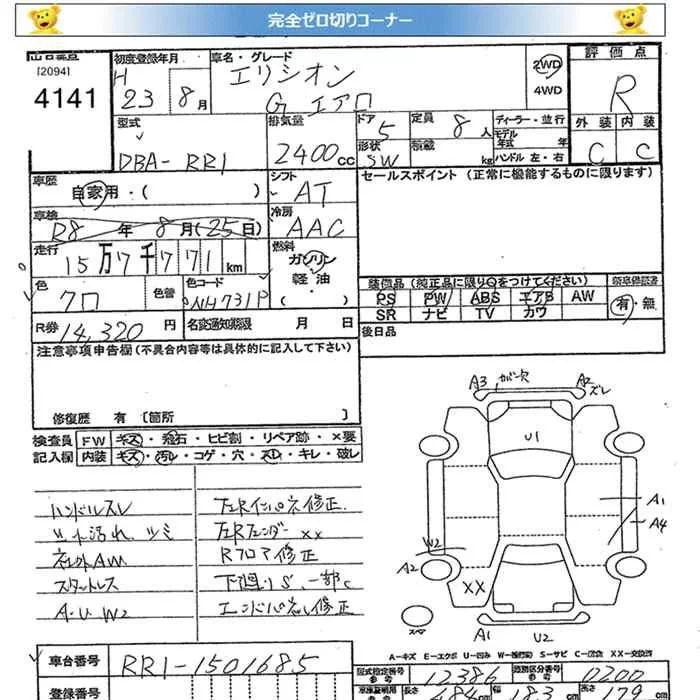 完全ゼロ切りコーナー
出品番
[2094]
4141
初度登録年月
H 23 8月
車名・グレード
エリシオン
G エアロ
2WD
4WD
評価点
R
外装 内装
C C
型式
DBA-RR1
排気量
2400cc
ドア 5
形状 SW
定員 8人
積載 kg
ディーラー・並行
モデル年式 年
ハンドル 左・右
車歴
自家用・( )
シフト
AT
セールスポイント (正常に機能するものに限ります)
車検
R8年 8月(25日)
冷房
AAC
走行
15万7千771km
燃料
ガソリン
軽油
( )
色
クロ
色替
色コード
NH731P
装備品(純正品に限り○をつけてください)
PS PW ABS エアB AW
SR ナビ TV カワ
新車保証書
有・無
R券 14,320円
名変通知期限 月 日
後日品
注意事項申告欄(不具合内容等は具体的に記入して下さい)
修復歴 有 [箇所 ]
検査員 FW キズ・飛石・ヒビ割・リペア跡・×要
記入欄 内装 キズ・汚レ・コゲ・穴・スレ・キレ・破レ
ハンドルスレ
シート汚れ、シミ
ネレクトAW
スタットレス
A-U W2
左Rインパネ修正
左Rフェンダー XX
Rフロア修正
下廻りS、一部C
エンドパネル修正
A3 ガ欠 A2 ズレ
U1
A1
A4
W2
A2
XX
スペア
A1 U2
A-キズ E-エクボ U-凹み W-補修跡 S-サビ C-腐食 XX-交換済
車台番号
RR1-1501685
型式指定番号
参考
12386
類別区分番号
参考
0200
登録番号
車庫証明用
参考
長さ 484cm
幅 183cm
高さ 179cm